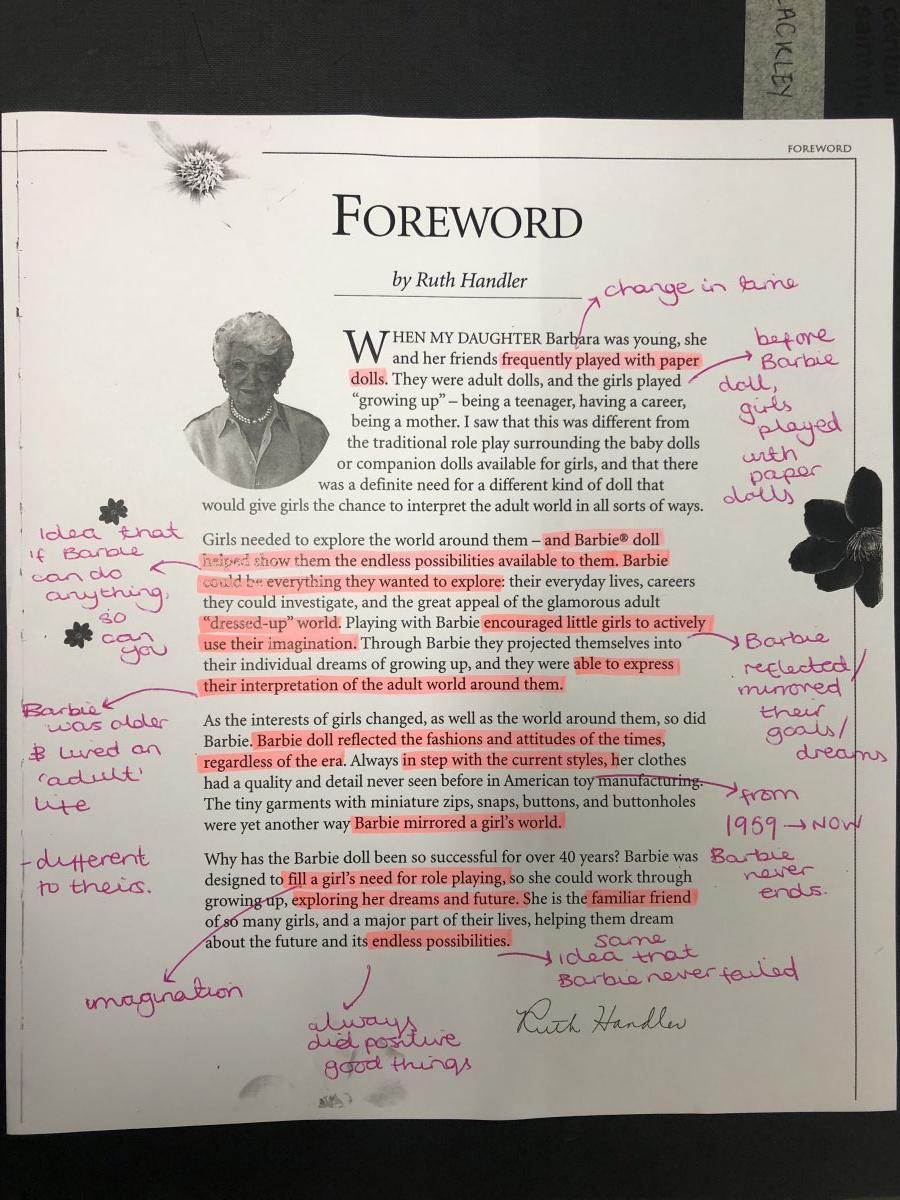 ACKLEY
FOREWORD
FOREWORD
by Ruth Handler
change in time
WHEN MY DAUGHTER Barbara was young, she
and her friends frequently played with paper
dolls. They were adult dolls, and the girls played
“growing up” – being a teenager, having a career,
being a mother. I saw that this was different from
the traditional role play surrounding the baby dolls
or companion dolls available for girls, and that there
was a definite need for a different kind of doll that
would give girls the chance to interpret the adult world in all sorts of ways.
before
Barbie
doll,
girls
played
with
paper
dolls
Idea that
if Barbie
can do
anything,
so
can
you
Girls needed to explore the world around them – and Barbie® doll
helped show them the endless possibilities available to them. Barbie
could be everything they wanted to explore: their everyday lives, careers
they could investigate, and the great appeal of the glamorous adult
“dressed-up” world. Playing with Barbie encouraged little girls to actively
use their imagination. Through Barbie they projected themselves into
their individual dreams of growing up, and they were able to express
their interpretation of the adult world around them.
Barbie
reflected/
mirrored
their
goals/
dreams
Barbie
was older
& lived an
'adult'
life
- different
to theirs.
As the interests of girls changed, as well as the world around them, so did
Barbie. Barbie doll reflected the fashions and attitudes of the times,
regardless of the era. Always in step with the current styles, her clothes
had a quality and detail never seen before in American toy manufacturing.
The tiny garments with miniature zips, snaps, buttons, and buttonholes
were yet another way Barbie mirrored a girl's world.
from
1959 → NOW
Barbie
never
ends.
Why has the Barbie doll been so successful for over 40 years? Barbie was
designed to fill a girl's need for role playing, so she could work through
growing up, exploring her dreams and future. She is the familiar friend
of so many girls, and a major part of their lives, helping them dream
about the future and its endless possibilities.
same
idea that
Barbie never failed
imagination
always
did positive
good things
Ruth Handler